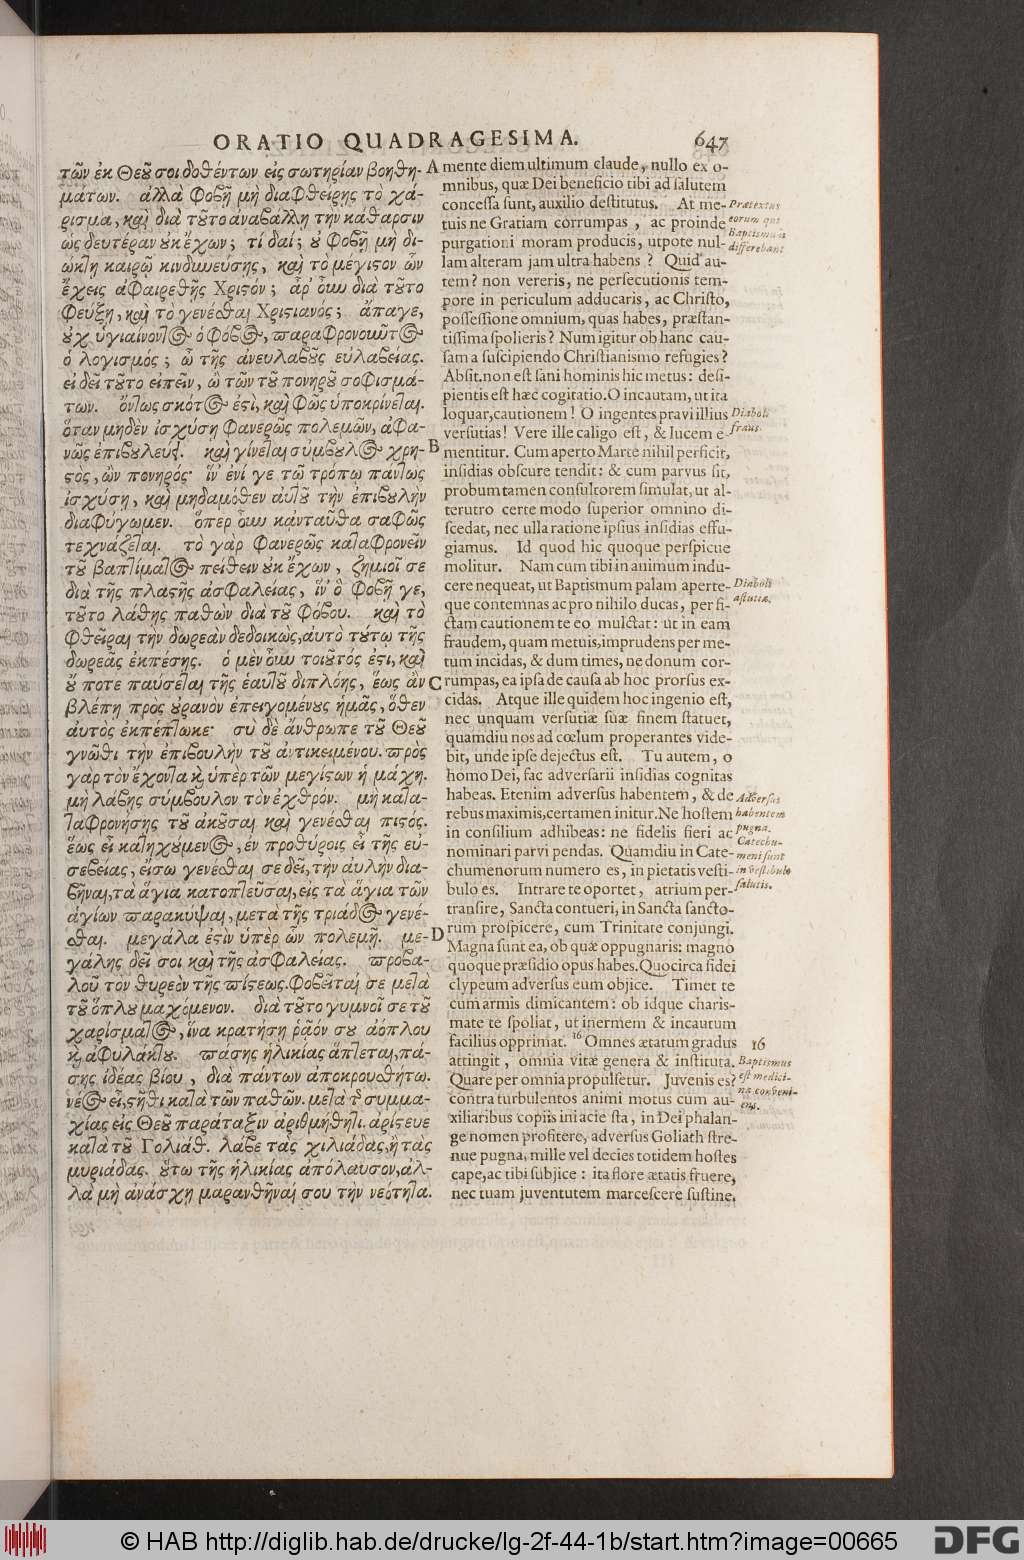 ORATIO QUADRAGESIMA. 647
τῶν ἐκ Θεοῦ σοι δοθέντων εἰς σωτηρίαν βοηθη-
μάτων. ἀλλὰ φοβῇ μὴ διαφθείρῃς τὸ χά-
ρισμα, καὶ διὰ τοῦτο ἀναβάλλῃ τὴν κάθαρσιν
ὡς δευτέραν οὐκ ἔχων; τί δαί; οὐ φοβῇ μὴ δι-
ώκτῃ καιρῷ κινδυνεύσῃς, καὶ τὸ μέγιστον ὧν
ἔχεις ἀφαιρεθῇς Χριστόν; ἆρ' οὖν διὰ τοῦτο
φεύξῃ, καὶ τὸ γενέσθαι Χριστιανός; ἄπαγε,
οὐχ ὑγιαίνοντος ὁ φόβος, παραφρονοῦντος
ὁ λογισμός; ὢ τῆς ἀνευλαβοῦς εὐλαβείας.
εἰ δεῖ τοῦτο εἰπεῖν, ὢ τῶν τοῦ πονηροῦ σοφισμά-
των. ὄντως σκότος ἐστὶ, καὶ φῶς ὑποκρίνεται.
ὅταν μηδὲν ἰσχύσῃ φανερῶς πολεμῶν, ἀφα-
νῶς ἐπιβουλεύει. καὶ γίνεται σύμβουλος χρη-
στὸς, ὢν πονηρός· ἵν' ἑνί γε τῷ τρόπῳ πάντως
ἰσχύσῃ, καὶ μηδαμόθεν αὐτοῦ τὴν ἐπιβουλὴν
διαφύγωμεν. ὅπερ οὖν κἀνταῦθα σαφῶς
τεχνάζεται. τὸ γὰρ φανερῶς καταφρονεῖν
τοῦ βαπτίσματος πείθειν οὐκ ἔχων, ζημιοῖ σε
διὰ τῆς πλαστῆς ἀσφαλείας, ἵν' ὃ φοβῇ γε,
τοῦτο λάθῃς παθὼν διὰ τοῦ φόβου. καὶ τὸ
φθεῖραι τὴν δωρεὰν δεδοικὼς, αὐτὸ τούτῳ τῆς
δωρεᾶς ἐκπέσῃς. ὁ μὲν οὖν τοιοῦτός ἐστι, καὶ
οὔ ποτε παύσεται τῆς ἑαυτοῦ διπλόης, ἕως ἂν
βλέπῃ πρὸς οὐρανὸν ἐπειγομένους ἡμᾶς, ὅθεν
αὐτὸς ἐκπέπτωκε· σὺ δὲ ἄνθρωπε τοῦ Θεοῦ
γνῶθι τὴν ἐπιβουλὴν τοῦ ἀντικειμένου. πρὸς
γὰρ τὸν ἔχοντα καὶ ὑπὲρ τῶν μεγίστων ἡ μάχη.
μὴ λάβῃς σύμβουλον τὸν ἐχθρόν. μὴ κατα-
ταφρονήσῃς τοῦ ἀκοῦσαι καὶ γενέσθαι πιστός.
ἕως εἶ κατηχούμενος, ἐν προθύροις εἶ τῆς εὐ-
σεβείας, εἴσω γενέσθαι σε δεῖ, τὴν αὐλὴν δια-
βῆναι, τὰ ἅγια κατοπτεῦσαι, εἰς τὰ ἅγια τῶν
ἁγίων παρακύψαι, μετὰ τῆς τριάδος γενέ-
σθαι. μεγάλα ἐστὶν ὑπὲρ ὧν πολεμῇ. με-
γάλης δεῖ σοι καὶ τῆς ἀσφαλείας. προβα-
λοῦ τὸν θυρεὸν τῆς πίστεως. φοβεῖταί σε μετὰ
τοῦ ὅπλου μαχόμενον. διὰ τοῦτο γυμνοῖ σε τοῦ
χαρίσματος, ἵνα κρατήσῃ ῥᾷόν σου ἀόπλου
καὶ ἀφυλάκτου. πάσης ἡλικίας ἅπτεται, πά-
σης ἰδέας βίου, διὰ πάντων ἀποκρουσθήτω.
νέος εἶ, στῆθι κατὰ τῶν παθῶν. μετὰ τῆς συμμα-
χίας εἰς Θεοῦ παράταξιν ἀριθμήθητι. ἀρίστευε
κατὰ τοῦ Γολιάθ. λάβε τὰς χιλιάδας, ἢ τὰς
μυριάδας. οὕτω τῆς ἡλικίας ἀπόλαυσον, ἀλ-
λὰ μὴ ἀνάσχῃ μαρανθῆναί σου τὴν νεότητα.
A
B
C
D
mente diem ultimum claude, nullo ex o-
mnibus, quæ Dei beneficio tibi ad salutem
concessa sunt, auxilio destitutus. At me-
tuis ne Gratiam corrumpas, ac proinde
purgationi moram producis, utpote nul-
lam alteram jam ultra habens? Quid au-
tem? non vereris, ne persecutionis tem-
pore in periculum adducaris, ac Christo,
possessione omnium, quas habes, præstan-
tissima spolieris? Num igitur ob hanc cau-
sam a suscipiendo Christianismo refugies?
Absit. non est sani hominis hic metus: desi-
pientis est hæc cogitatio. O incautam, ut ita
loquar, cautionem! O ingentes pravi illius
versutias! Vere ille caligo est, & lucem e-
mentitur. Cum aperto Marte nihil perficit,
insidias obscure tendit: & cum parvus sit,
probum tamen consultorem simulat, ut al-
terutro certe modo superior omnino di-
scedat, nec ulla ratione ipsius insidias effu-
giamus. Id quod hic quoque perspicue
molitur. Nam cum tibi in animum indu-
cere nequeat, ut Baptismum palam aperte-
que contemnas ac pro nihilo ducas, per fi-
ctam cautionem te eo mulctat: ut in eam
fraudem, quam metuis, imprudens per me-
tum incidas, & dum times, ne donum cor-
rumpas, ea ipsa de causa ab hoc prorsus ex-
cidas. Atque ille quidem hoc ingenio est,
nec unquam versutiæ suæ finem statuet,
quamdiu nos ad cœlum properantes vide-
bit, unde ipse dejectus est. Tu autem, o
homo Dei, fac adversarii insidias cognitas
habeas. Etenim adversus habentem, & de
rebus maximis, certamen initur. Ne hostem
in consilium adhibeas: ne fidelis fieri ac
nominari parvi pendas. Quamdiu in Cate-
chumenorum numero es, in pietatis vesti-
bulo es. Intrare te oportet, atrium per-
transire, Sancta contueri, in Sancta sancto-
rum prospicere, cum Trinitate conjungi.
Magna sunt ea, ob quæ oppugnaris: magno
quoque præsidio opus habes. Quocirca fidei
clypeum adversus eum objice. Timet te
cum armis dimicantem: ob idque charis-
mate te spoliat, ut inermem & incautum
facilius opprimat. 16 Omnes ætatum gradus
attingit, omnia vitæ genera & instituta.
Quare per omnia propulsetur. Juvenis es?
contra turbulentos animi motus cum au-
xiliaribus copiis in acie sta, in Dei phalan-
ge nomen profitere, adversus Goliath stre-
nue pugna, mille vel decies totidem hostes
cape, ac tibi subjice: ita flore ætatis fruere,
nec tuam juventutem marcescere sustine.
Prætextus
eorum qui
Baptismum
differebant
Diaboli
fraus.
Diaboli
astutiæ.
Adversus
habentem
pugna.
Catechu-
meni sunt
in vestibulo
salutis.
16
Baptismus
est medici-
na conveni-
ens.
© HAB http://diglib.hab.de/drucke/lg-2f-44-1b/start.htm?image=00665
DFG